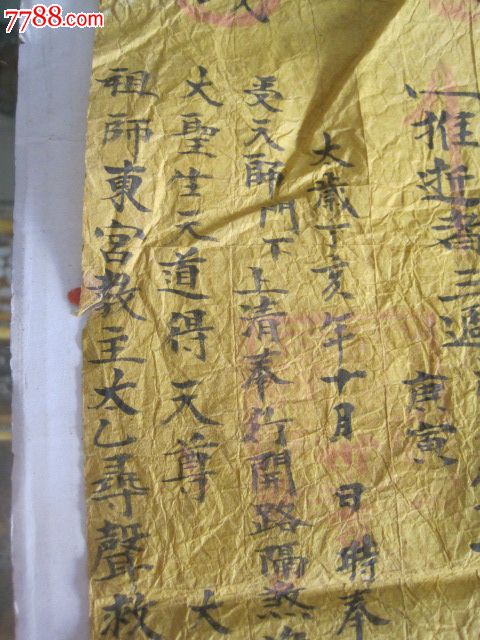 7788.com
推逝者三
庚寅
大歲丁亥年十月 日時奉
受天師門下上清奉行開路隔煞
大聖生天道得天尊 大
祖師東宮教主太乙尋聲救